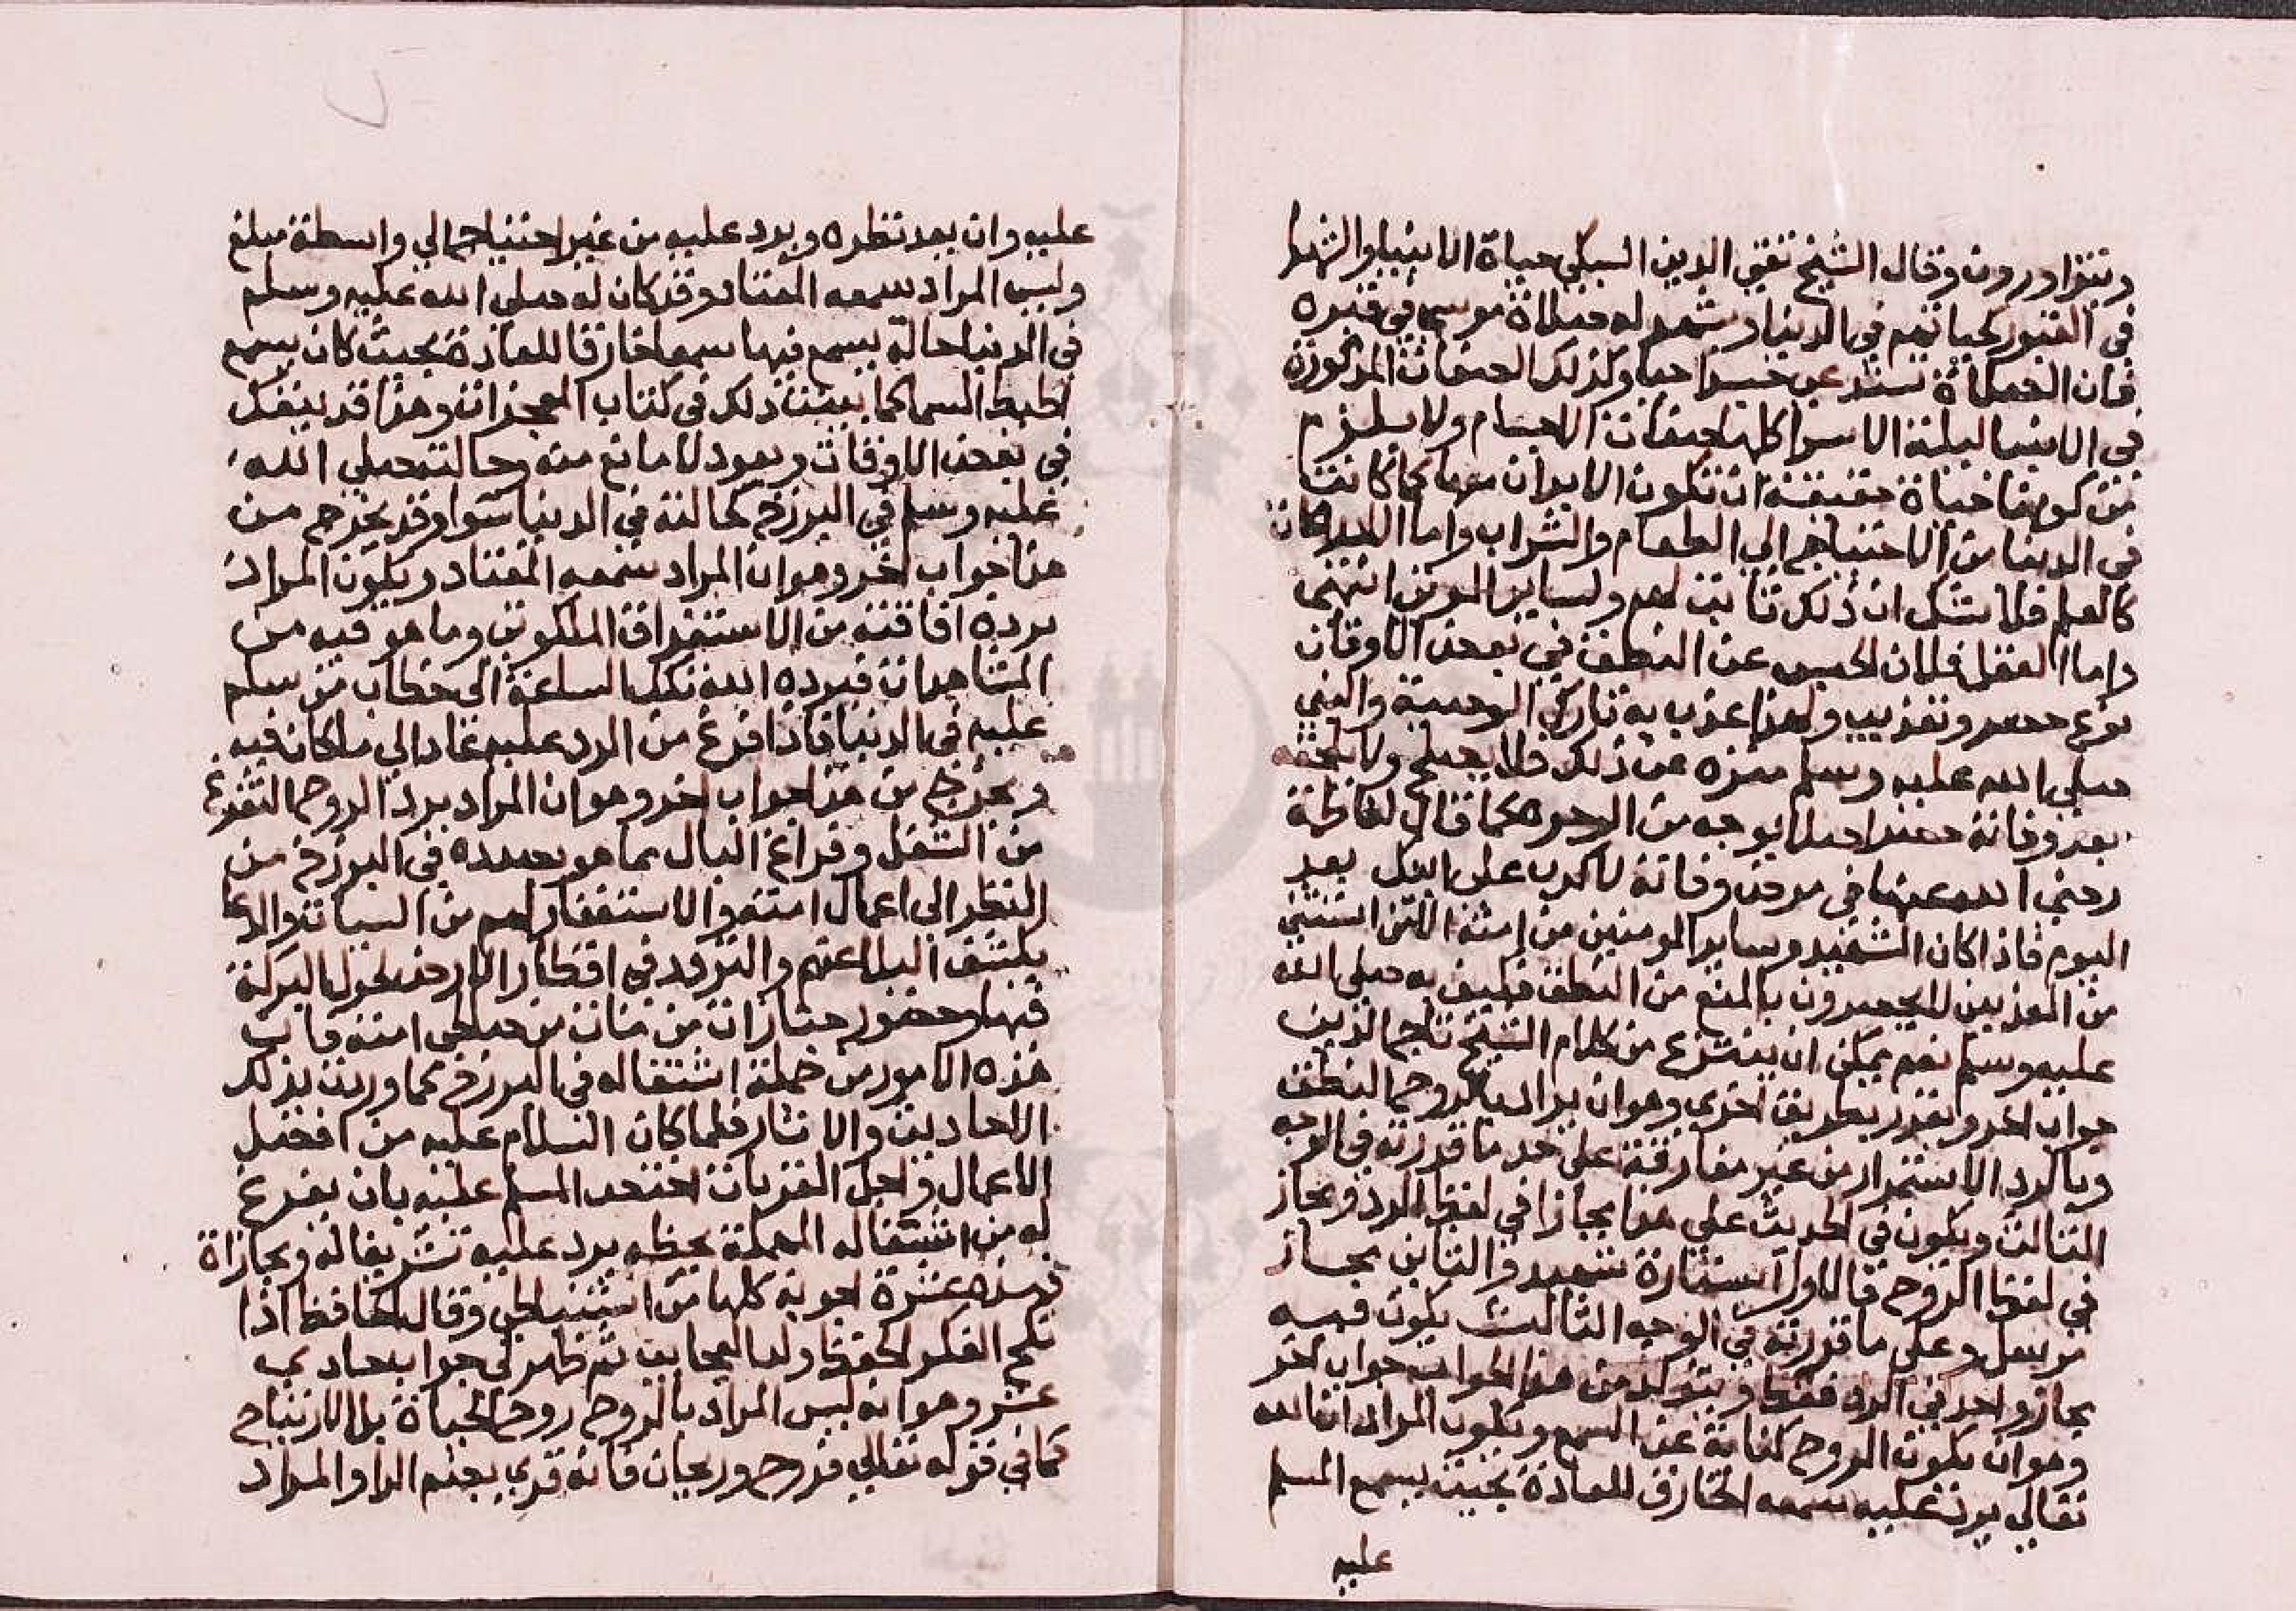 ويتزاورون وقال الشيخ تقي الدين السبكي حياة الانبيا والشهدا
في القبور كحياتهم في الدنيا ويشهد له صلاة موسى في قبره
فان الصلاة تستدعي جسدا حيا وكذلك الصفات المذكورة
في الانبيا ليلة الاسرا كلها صفات الاجسام ولا يلزم
من كونها حياة حقيقة ان تكون الابدان معها كما كانت
في الدنيا من الاحتياج الى الطعام والشراب واما الادراكات
كالعلم فلا شك ان ذلك ثابت لهم ولساير الموتى انتهى
واما العقل فلان الحبس عن النطق في بعض الاوقات
نوع حصر وتعذيب ولهذا عذب به تارك الوصية والنبي
صلى الله عليه وسلم منزه عن ذلك فلا يصلح ولا يلحقه
بعد وفاته حصر اصلا بوجه من الوجوه كما قال لفاطمة
رضي الله عنها في مرض وفاته لا كرب على ابيك بعد
اليوم فاذا كان الشهيد وساير المومنين من امته الا من استثنى
من المعذبين لا يحصرون بالمنع من النطق فكيف به صلى الله
عليه وسلم نعم يمكن ان ينتزع من كلام الشيخ تاج الدين
جواب اخر ويقرر بطريق اخرى وهو ان يراد بالروح النطق
وبالرد الاستمرار من غير مفارقة على حد ما قررته في الوجه
الثالث ويكون في الحديث على هذا مجازا في لفظ الرد ومجاز
في لفظ الروح فالاول استعارة تبعيه والثاني مجاز
مرسل وعلى ما قررته في الوجه الثالث يكون فيه
مجاز واحد في الرد فقط ويتولد من هذا الجواب جواب اخر
وهو ان يكون الروح كناية عن السمع ويكون المراد ان الله
تعالى يرد عليه سمعه الخارق للعادة بحيث يسمع المسلم
عليه
عليه وان بعد نظره ويرد عليه من غير احتياج الى واسطة مبلغ
وليس المراد سمعه المعتاد وقد كان له صلى الله عليه وسلم
في الدنيا حالة يسمع فيها سمعا خارقا للعادة بحيث كان يسمع
اطيط السما كما بينت ذلك في كتاب المعجزات وهذا قد ينفك
في بعض الاوقات ويعود لا مانع منه وحالته صلى الله
عليه وسلم في البرزخ كحالته في الدنيا سوا وقد يخرج من
هذا جواب اخر وهو ان المراد سمعه المعتاد ويكون المراد
برده افاقته من الاستغراق الملكوتي وما هو فيه من
المشاهدات فيرده الله تلك الساعة الى خطاب من سلم
عليه في الدنيا فاذا فرغ من الرد عليه عاد الى ما كان فيه
ويخرج من هذا جواب اخر وهو ان المراد برد الروح التفرغ
من الشغل وفراغ البال مما هو بصدده في البرزخ من
النظر الى اعمال امته والاستغفار لهم من السيات والدعا
بكشف البلا عنهم والتردد في اقطار الارض لحول البركة
فيها وحضور جنازات من مات من صالحي امته فان
هذه الامور من جملة اشتغاله في البرزخ كما وردت بذلك
الاحاديث والاثار فلما كان السلام عليه من افضل
الاعمال واجل القربات اختص المسلم عليه بان يفرغ
له من اشتغاله المهمة لحظه يرد عليه تشريفا له ومجازاة
فهذه عشرة اجوبة كلها من استنباطي وقال الحافظ اذا
نكح الفكر الحفظ ولد العجايب ثم ظهر لي جواب حادي
عشر وهو انه ليس المراد بالروح روح الحياة بل الارتياح
كما في قوله تعالى فروح وريحان فانه قري بضم الرا والمراد